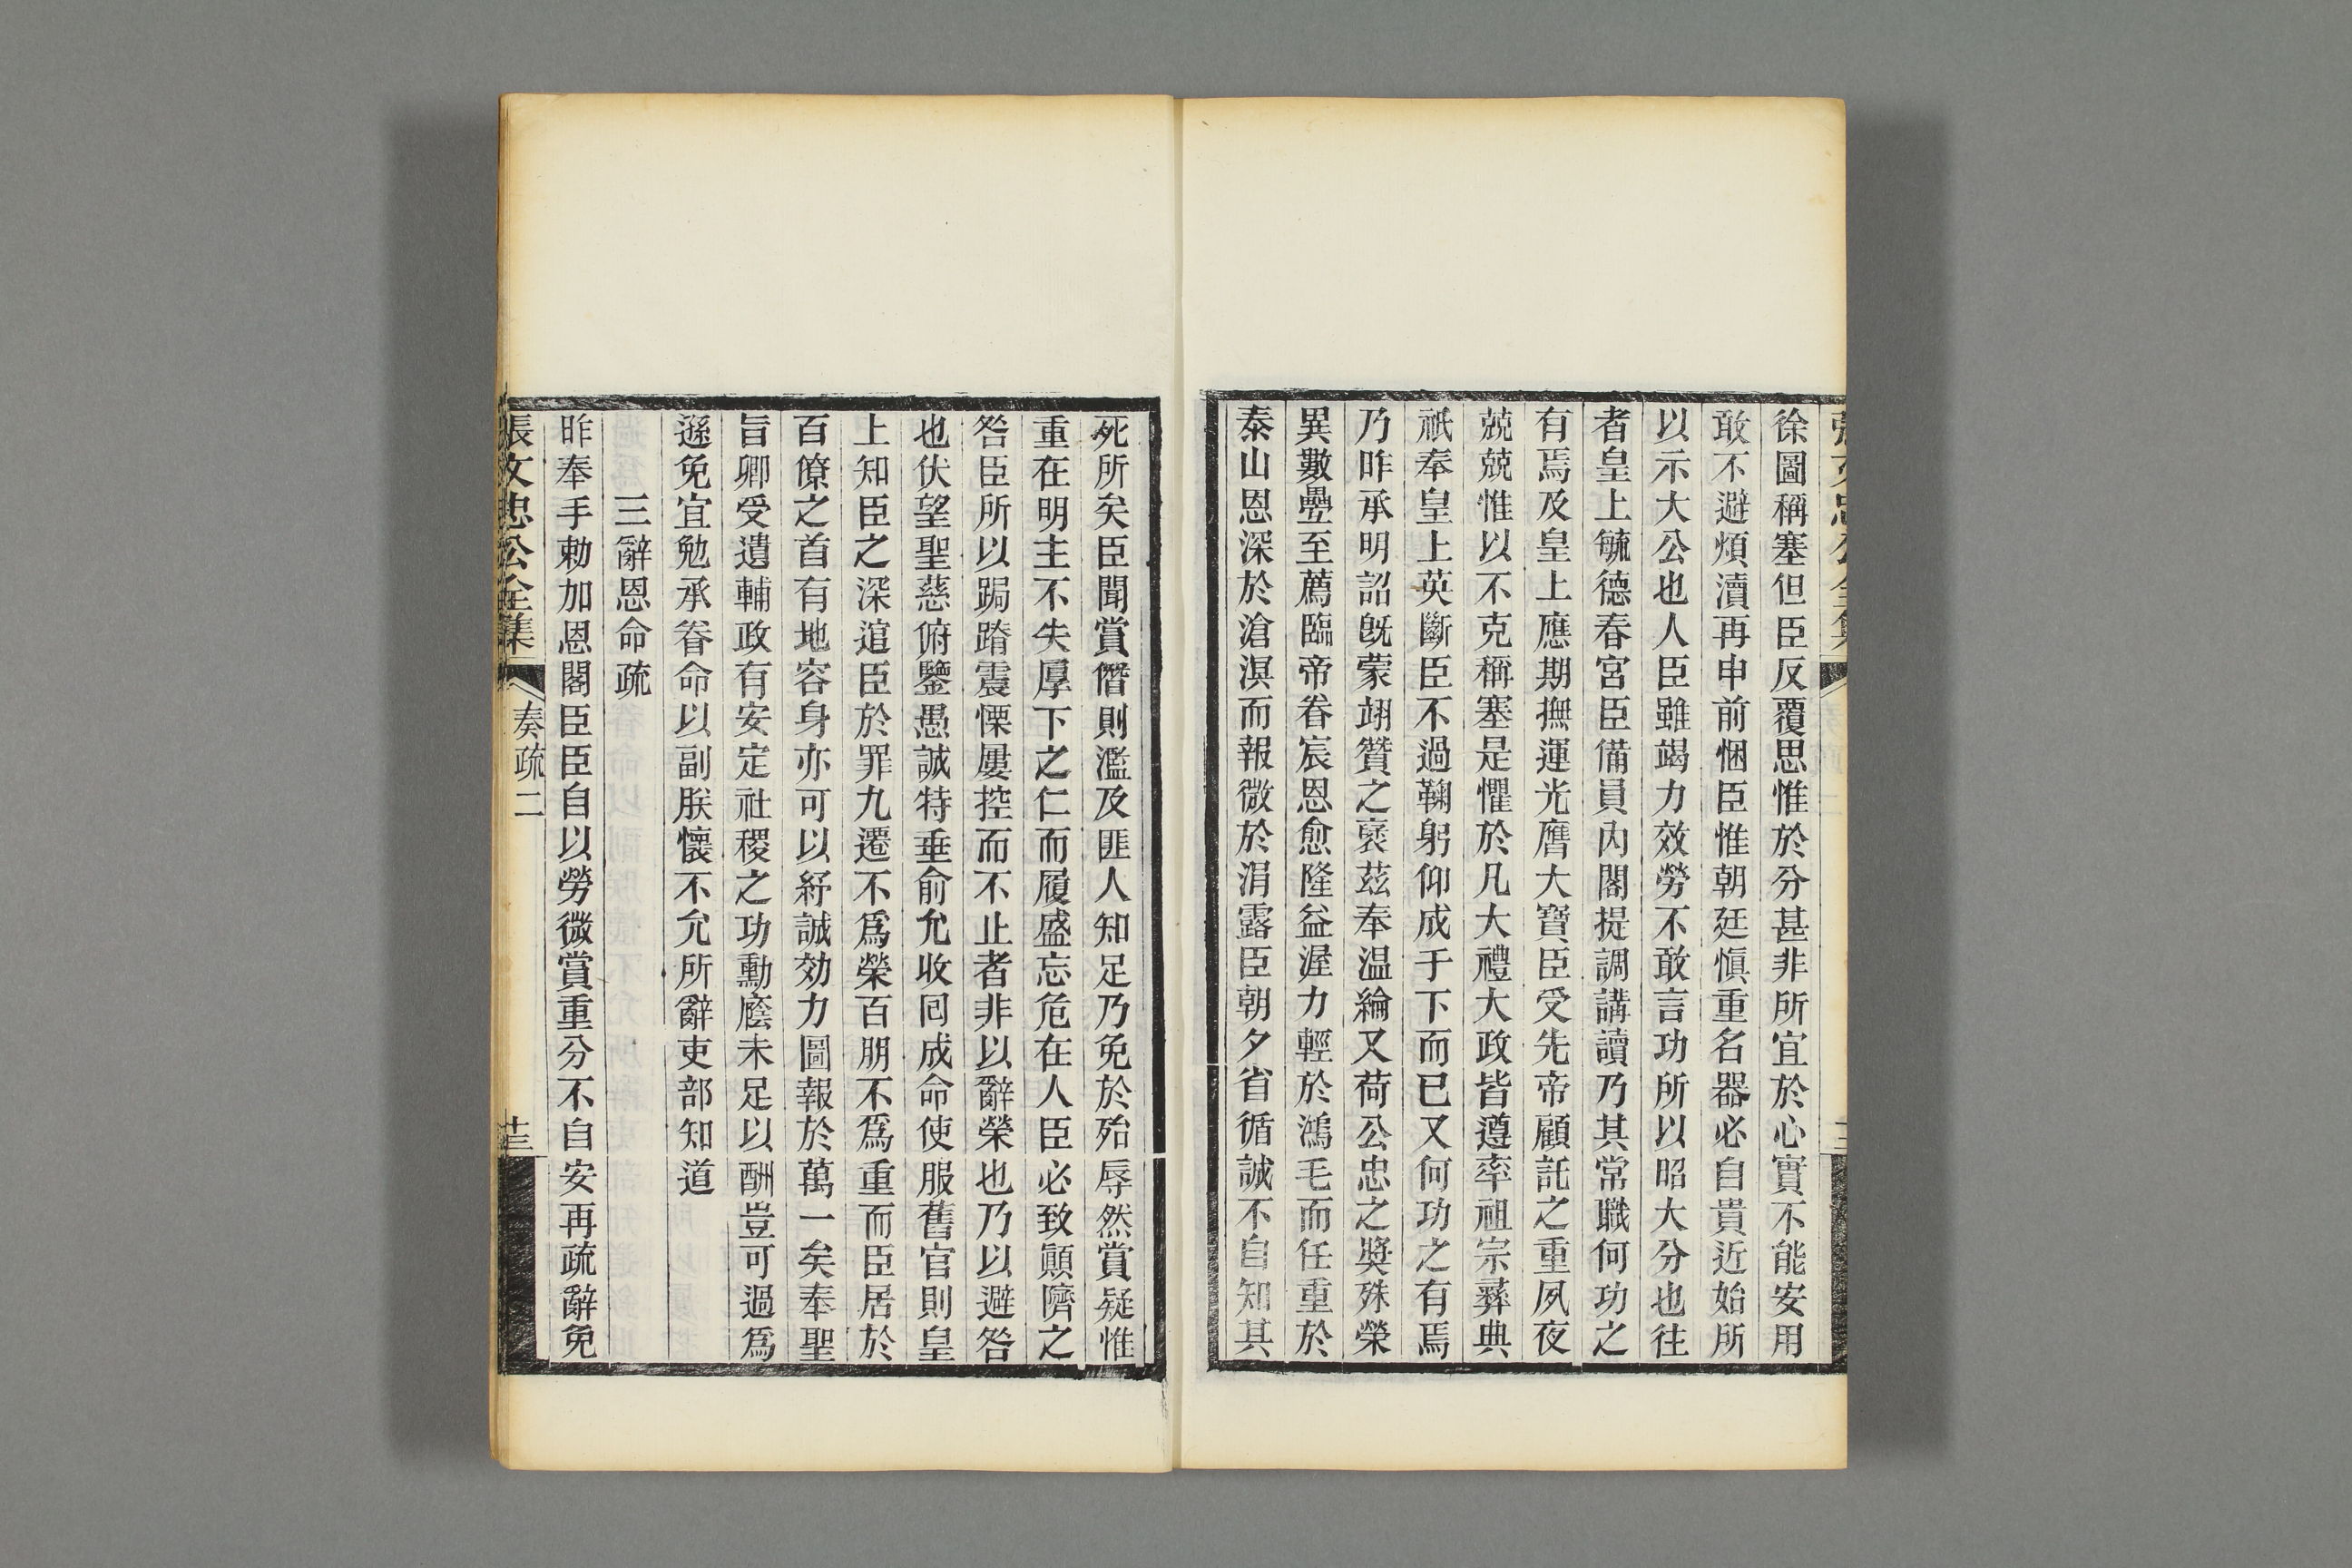 徐圖稱塞但臣反覆思惟於分甚非所宜於心實不能安用
敢不避煩瀆再申前悃臣惟朝廷愼重名器必自貴近始所
以示大公也人臣雖竭力效勞不敢言功所以昭大分也往
者皇上毓德春宮臣備員內閣提調講讀乃其常職何功之
有焉及皇上應期撫運光膺大寶臣受先帝顧託之重夙夜
兢兢惟以不克稱塞是懼於凡大禮大政皆遵率祖宗彞典
祇奉皇上英斷臣不過鞠躬仰成于下而已又何功之有焉
乃昨承明詔旣蒙翊贊之褒茲奉温綸又荷公忠之奬殊榮
異數疊至薦臨帝眷宸恩愈隆益渥力輕於鴻毛而任重於
泰山恩深於滄溟而報微於涓露臣朝夕省循誠不自知其
死所矣臣聞賞僭則濫及匪人知足乃免於殆辱然賞疑惟
重在明主不失厚下之仁而履盛忘危在人臣必致顚隮之
咎臣所以跼蹐震慄屢控而不止者非以辭榮也乃以避咎
也伏望聖慈俯鑒愚誠特垂俞允收囘成命使服舊官則皇
上知臣之深逭臣於罪九遷不爲榮百朋不爲重而臣居於
百僚之首有地容身亦可以紓誠効力圖報於萬一矣奉聖
旨卿受遺輔政有安定社稷之功勳廕未足以酬豈可過爲
遜免宜勉承眷命以副朕懷不允所辭吏部知道
三辭恩命疏
昨奉手勅加恩閣臣臣自以勞微賞重分不自安再疏辭免
張文忠公全集
奏疏二
十三